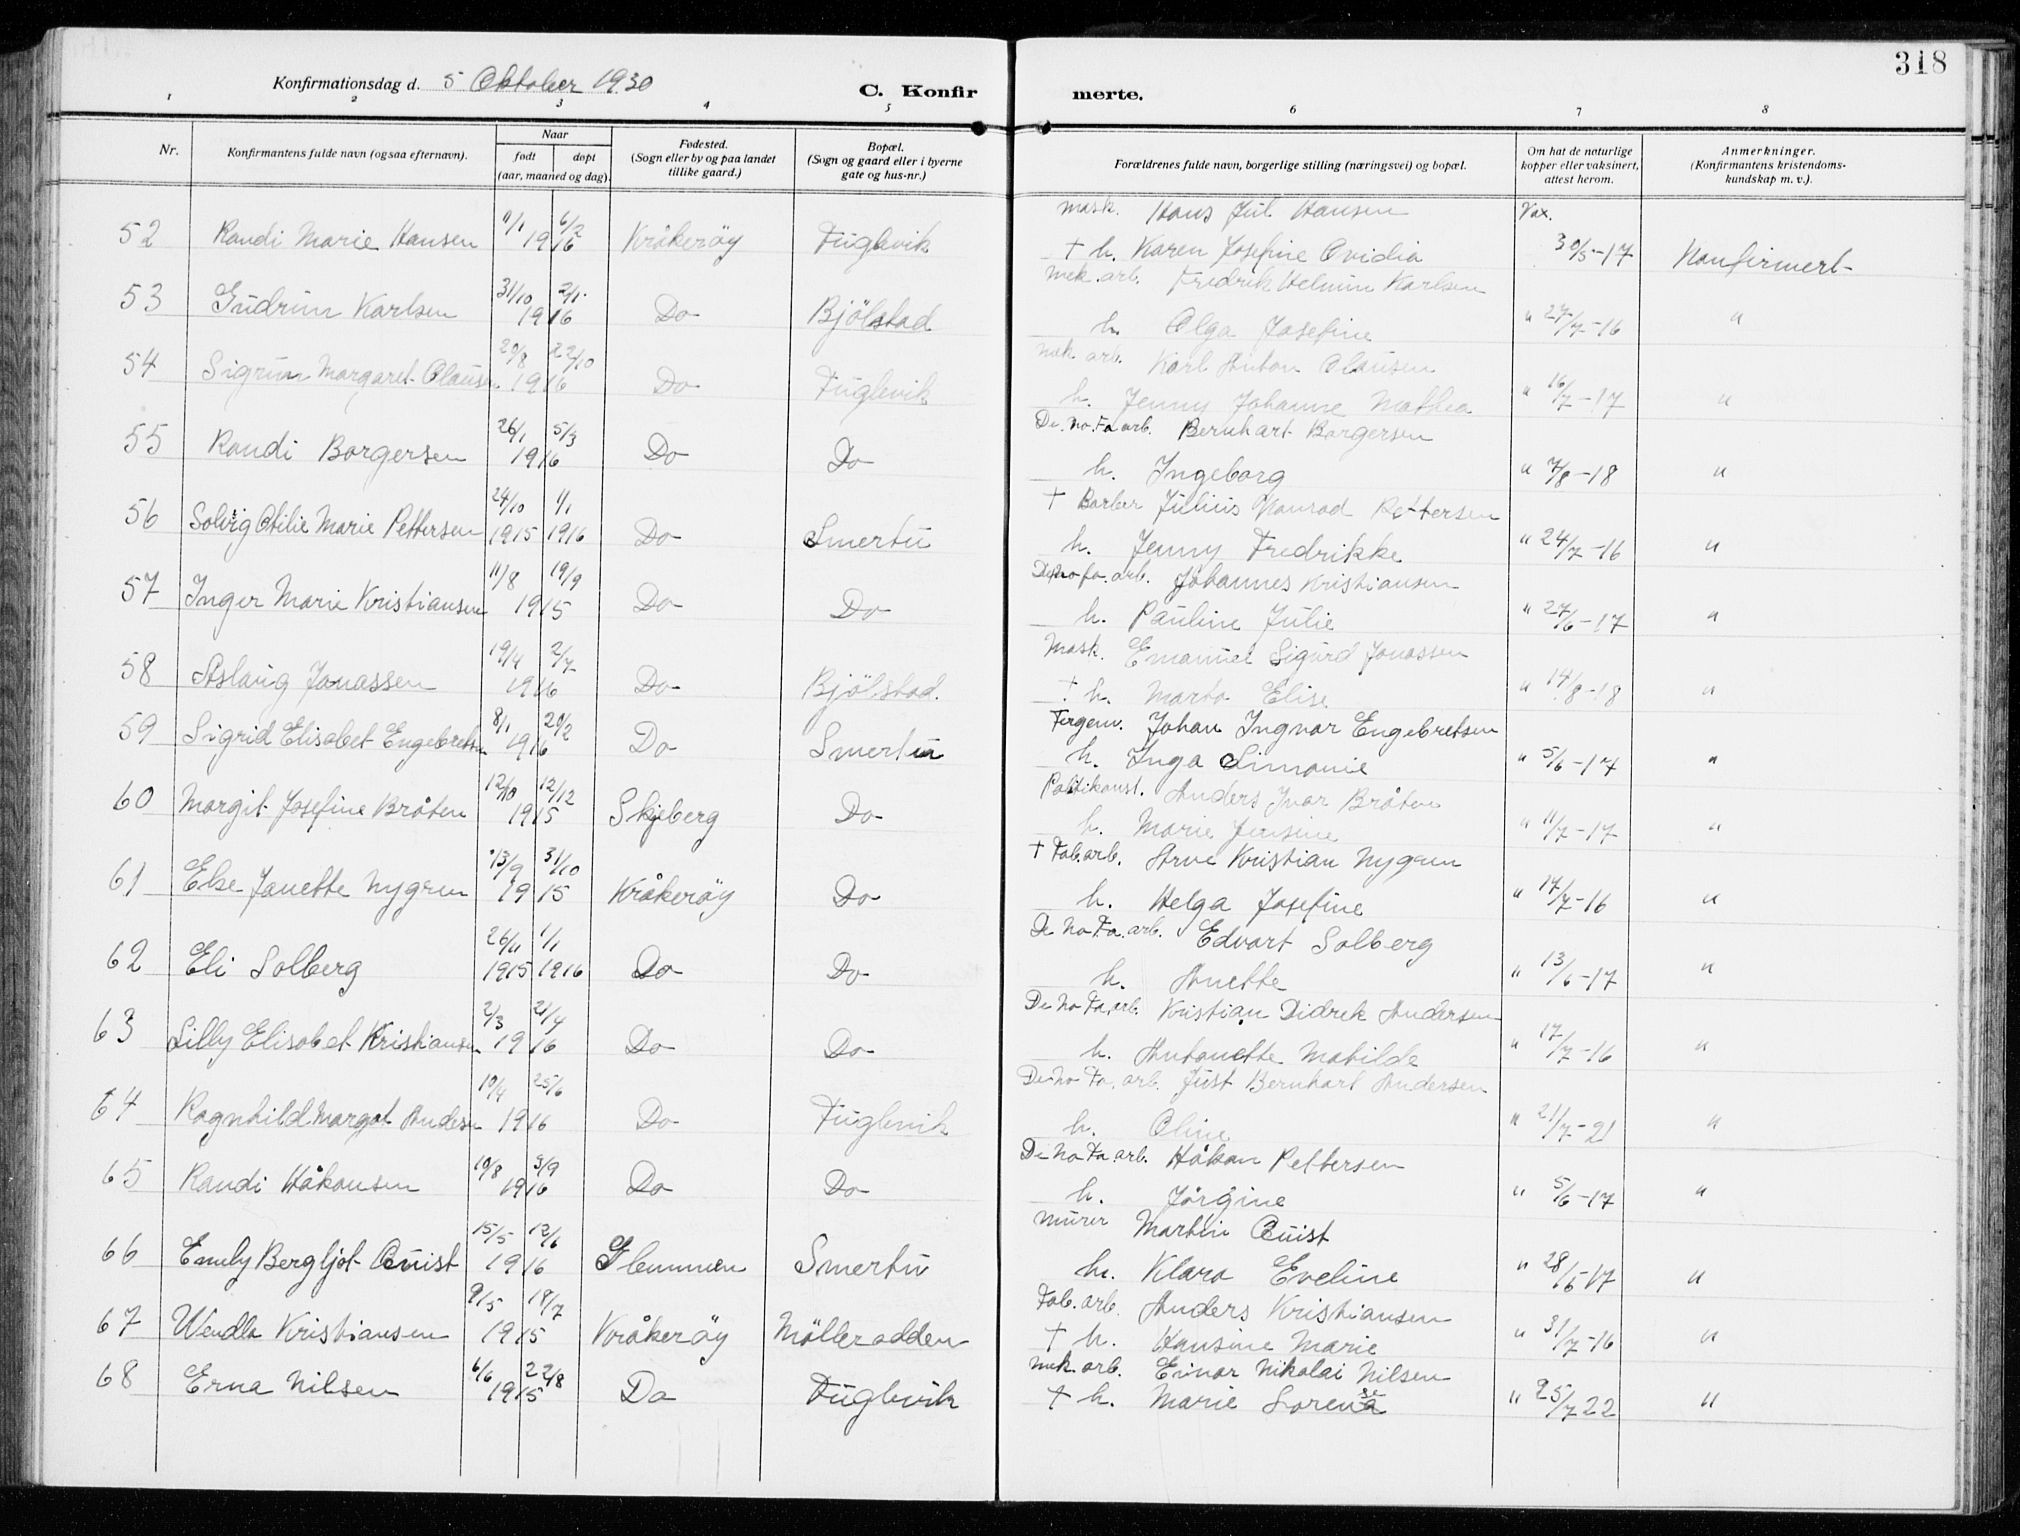 318
Konfirmationsdag d. 5 Oktober 1930
C. Konfirmerte.
1 2 3 4 5 6 7 8
Nr. Konfirmantens fulde navn (ogsaa efternavn). Naar født døpt (aar, maaned og dag). Fødested. (Sogn eller by og paa landet tillike gaard.) Bopæl. (Sogn og gaard eller i byerne gate og hus-nr.) Forældrenes fulde navn, borgerlige stilling (næringsvei) og bopæl. Om hat de naturlige kopper eller vaksinert, attest herom. Anmerkninger. (Konfirmantens kristendomskundskap m. v.).
mask. Hans Jul. Hansen Vax.
52 Randi Marie Hansen 11/1 6/2 1916 Kråkerøy Fuglevik † h. Karen Josefine Ovidia 30/5-17 Konfirmert
mek. arb. Fredrik Helmin Karlsen
53 Gudrun Karlsen 31/10 2/1 1916 Do Bjölstad h. Olga Josefine " 27/7-16 "
mek. arb. Karl Anton Clausen
54 Sigrun Margaret Clausen 20/8 22/10 1916 Do Fuglevik h. Jenny Johanne Mathea " 16/7-17 "
De.No.Fa arb. Bernhart Borgersen
55 Randi Borgersen 26/1 5/3 1916 Do Do h. Ingeborg " 7/8-18 "
† Barber Julius Konrad Pettersen
56 Solvig Otilie Marie Pettersen 24/10 1915 1/1 1916 Do Smertu h. Jenny Fredrikke " 24/7-16 "
Denofa arb. Johannes Kristiansen
57 Inger Marie Kristiansen 11/8 19/9 1915 Do Do h. Pauline Julie " 27/6-17 "
Mask. Emanuel Sigurd Jonassen
58 Aslaug Jonassen 19/4 2/7 1916 Do Bjölstad. † h. Marta Elise " 14/8-18 "
Fergem. Johan Ingvar Engebretsen
59 Sigrid Elisabet Engebretsen 8/1 20/2 1916 Do Smertu h. Inga Simonie " 5/6-17 "
Politikonst. Anders Ivar Bråten
60 Margit Josefine Bråten 12/10 12/12 1915 Skjeberg Do h. Marie Jensine " 11/7-17 "
† Fab.arb. Arne Kristian Nygren
61 Else Janette Nygren 13/9 31/10 1915 Kråkerøy Do h. Helga Josefine " 17/7-16 "
De No Fa. arb. Edvart Solberg
62 Eli Solberg 26/11 1915 1/1 1916 Do Do h. Anette " 13/6-17 "
De No Fa, arb. Kristian Didrek Andersen
63 Lilly Elisabet Kristiansen 2/3 21/4 1916 Do Do h. Antonette Matilde " 17/7-16 "
De No Fa, arb. Just Bernhart Andersen
64 Ragnhild Margot Andersen 10/4 25/6 1916 Do Fuglevik h. Oline " 21/7-21 "
De No Fa. arb. Håkon Pettersen
65 Randi Håkonsen 10/8 3/9 1916 Do Do h. Jörgine " 5/6-17 "
murer Martin Quist
66 Emely Bergljot Quist 15/5 12/6 1916 Glemmen Smertu h. Klara Eveline " 28/6 17 "
Fab. arb. Anders Kristiansen
67 Wendla Kristiansen 9/5 18/7 1915 Kråkerøy Mölleradden † h. Hansine Marie " 31/7-16 "
mek. arb. Einar Nikolai Nilsen
68 Erna Nilsen 6/6 22/8 1915 Do Fuglevik † h. Marie Lorense " 25/7 22 "